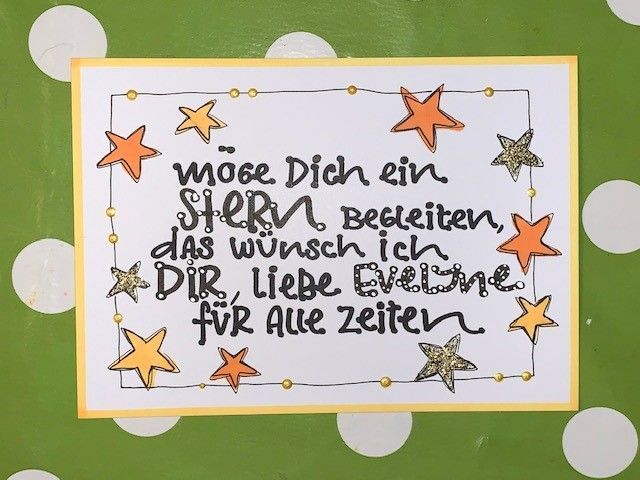 Möge Dich ein
Stern begleiten,
das wünsch ich
Dir, liebe Evelyne
für alle Zeiten